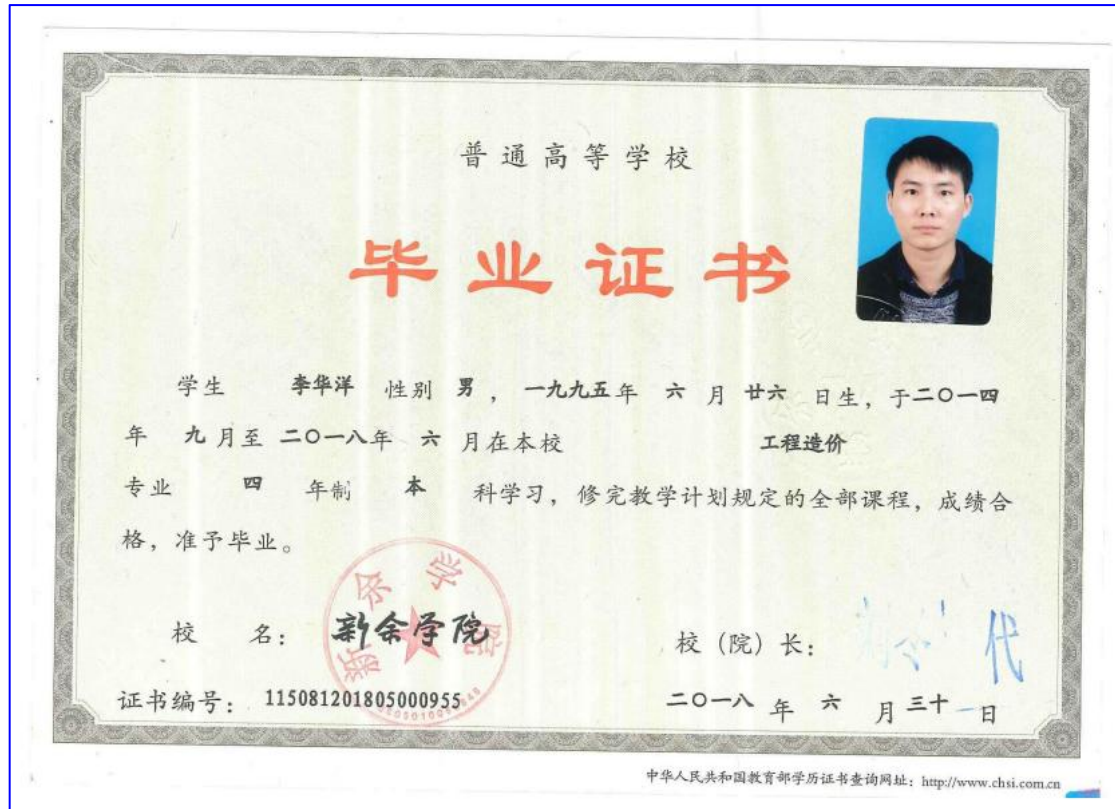 普通高等学校
毕业证书
学生 李华洋 性别 男，一九九五年 六 月 廿六 日生，于二〇一四
年 九月至 二〇一八年 六 月在本校 工程造价
专业 四 年制 本 科学习，修完教学计划规定的全部课程，成绩合
格，准予毕业。
校 名：新余学院
新余学院
校（院）长：
代
证书编号：115081201805000955
二〇一八 年 六 月 三十 日
中华人民共和国教育部学历证书查询网址：http://www.chsi.com.cn